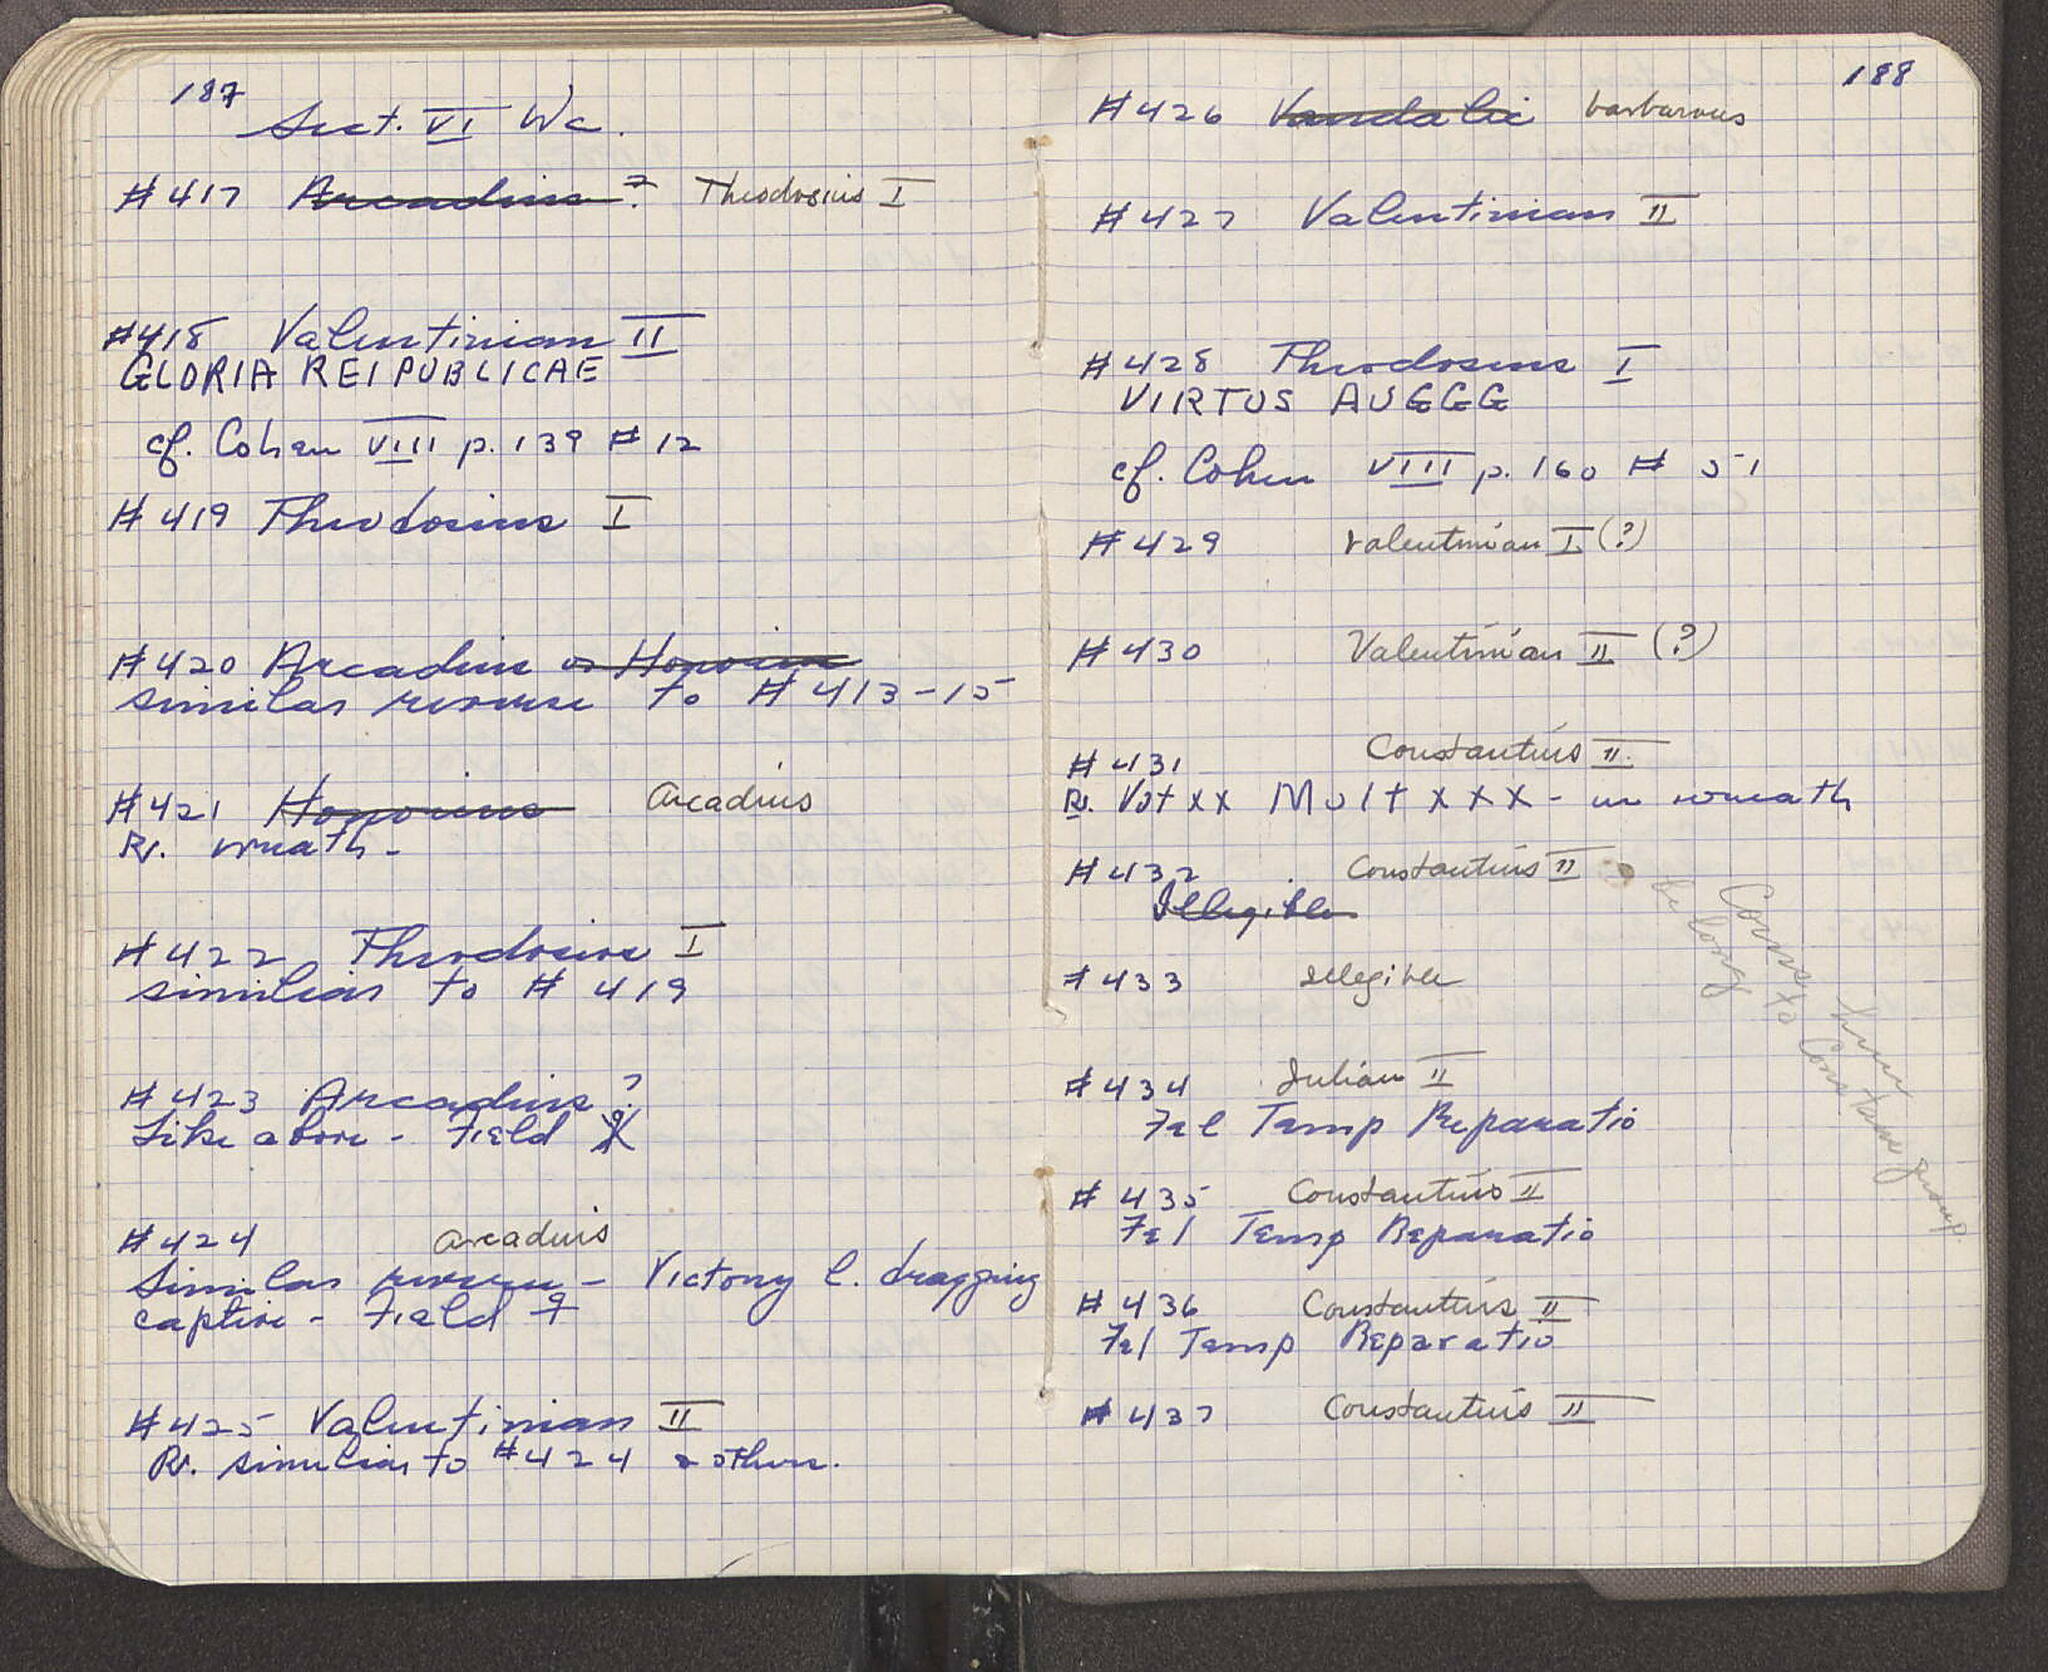 187
Sect. VI Wc.
#417 Arcadius ? Theodosius I
#418 Valentinian II
GLORIA REIPUBLICAE
cf. Cohen VIII p. 139 #12
#419 Theodosius I
#420 Arcadius or Honorius
similar reverse to #413-15
#421 Honorius Arcadius
Rv. wreath -
#422 Theodosius I
similar to #419
#423 Arcadius ?
Like above - Field
#424 Arcadius
Similar reverse - Victory l. dragging
captive - Field
#425 Valentinian II
Rv. similar to #424 & others.
188
#426 Vandalic barbarous
#427 Valentinian II
#428 Theodosius I
VIRTUS AUGGG
cf. Cohen VIII p. 160 # 51
#429 Valentinian I (?)
#430 Valentinian II (?)
#431 Constantius II
Rv. Vot XX Mult XXX - in wreath
#432 Constantius II
Illegible
#433 illegible
#434 Julian II
Fel Temp Reparatio
#435 Constantius II
Fel Temp Reparatio
#436 Constantius II
Fel Temp Reparatio
#437 Constantius II
belong
group